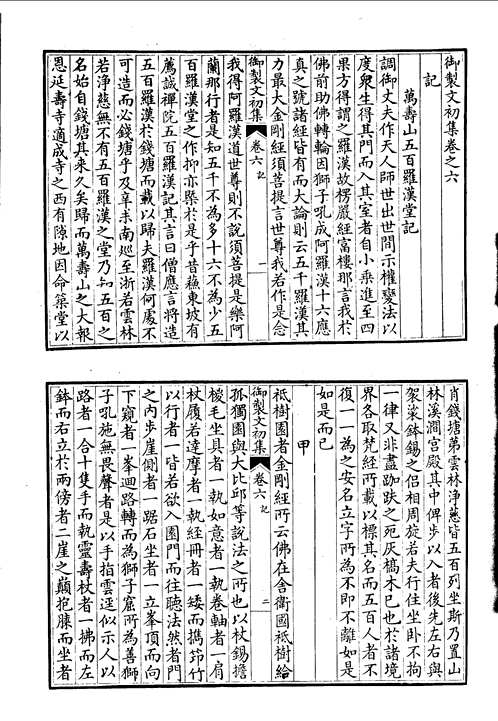 御製文初集卷之六
記
萬壽山五百羅漢堂記
調御丈夫作天人師世出世間示權變法以
度衆生得其門而入其室者自小乘進至四
果方得謂之羅漢故楞嚴經富樓那言我於
佛前助佛轉輪因獅子吼成阿羅漢十六應
真之號諸經皆有而大論則云五千羅漢其
力最大金剛經須菩提言世尊我若作是念
御製文初集 卷六 記 一
我得阿羅漢道世尊則不說須菩提是樂阿
蘭那行者是知五千不為多十六不為少五
百羅漢堂之作抑亦槩於是乎昔蘇東坡有
薦誠禪院五百羅漢記其言曰僧應言將造
五百羅漢於錢塘而載以歸夫羅漢何處不
可造而必錢塘乎及辛未南巡至浙若雲林
若淨慈無不有五百羅漢之堂乃知五百之
名始自錢塘其來久矣歸而萬壽山之大報
恩延壽寺適成寺之西有隙地因命築堂以
肖錢塘第雲林淨慈皆五百列坐斯乃置山
林溪澗宫殿其中俾步以入者後先左右與
袈裟鉢錫之侶相周旋若夫行住坐卧不拘
一律又非盡跏趺之死灰槁木已也於諸境
界各取梵經所載以標其名而五百人者不
復一一為之安名立字所為不即不離如是
如是而已
甲
祗樹園者金剛經所云佛在舍衞國祗樹給
御製文初集 卷六 記 二
孤獨園與大比邱等說法之所也以杖錫擔
椶毛坐具者一執如意者一執卷軸者一肩
杖履若達摩者一執經冊者一矮而攜筇竹
以行者一皆若欲入園門而往聽法然者門
之内步崖側者一踞石坐者一立峯頂而向
下窺者一峯迴路轉而為獅子窟所為善獅
子吼施無畏聲者是以手指雲逕似示人以
路者一合十隻手而執靈壽杖者一拂而左
鉢而右立於兩傍者二崖之巔抱膝而坐者